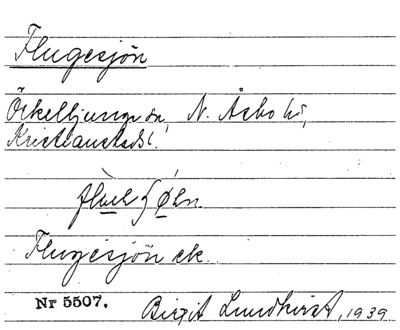 Flugesjön
Örkelljunga sn, N. Åsbo hd,
Kristianstads l.
Flugesjön ek.
Nr 5507. Birgit Lundkvist, 1939